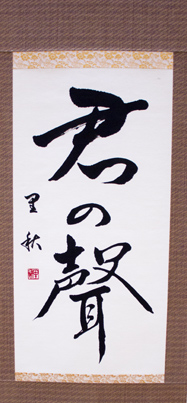 君の聲
里秋